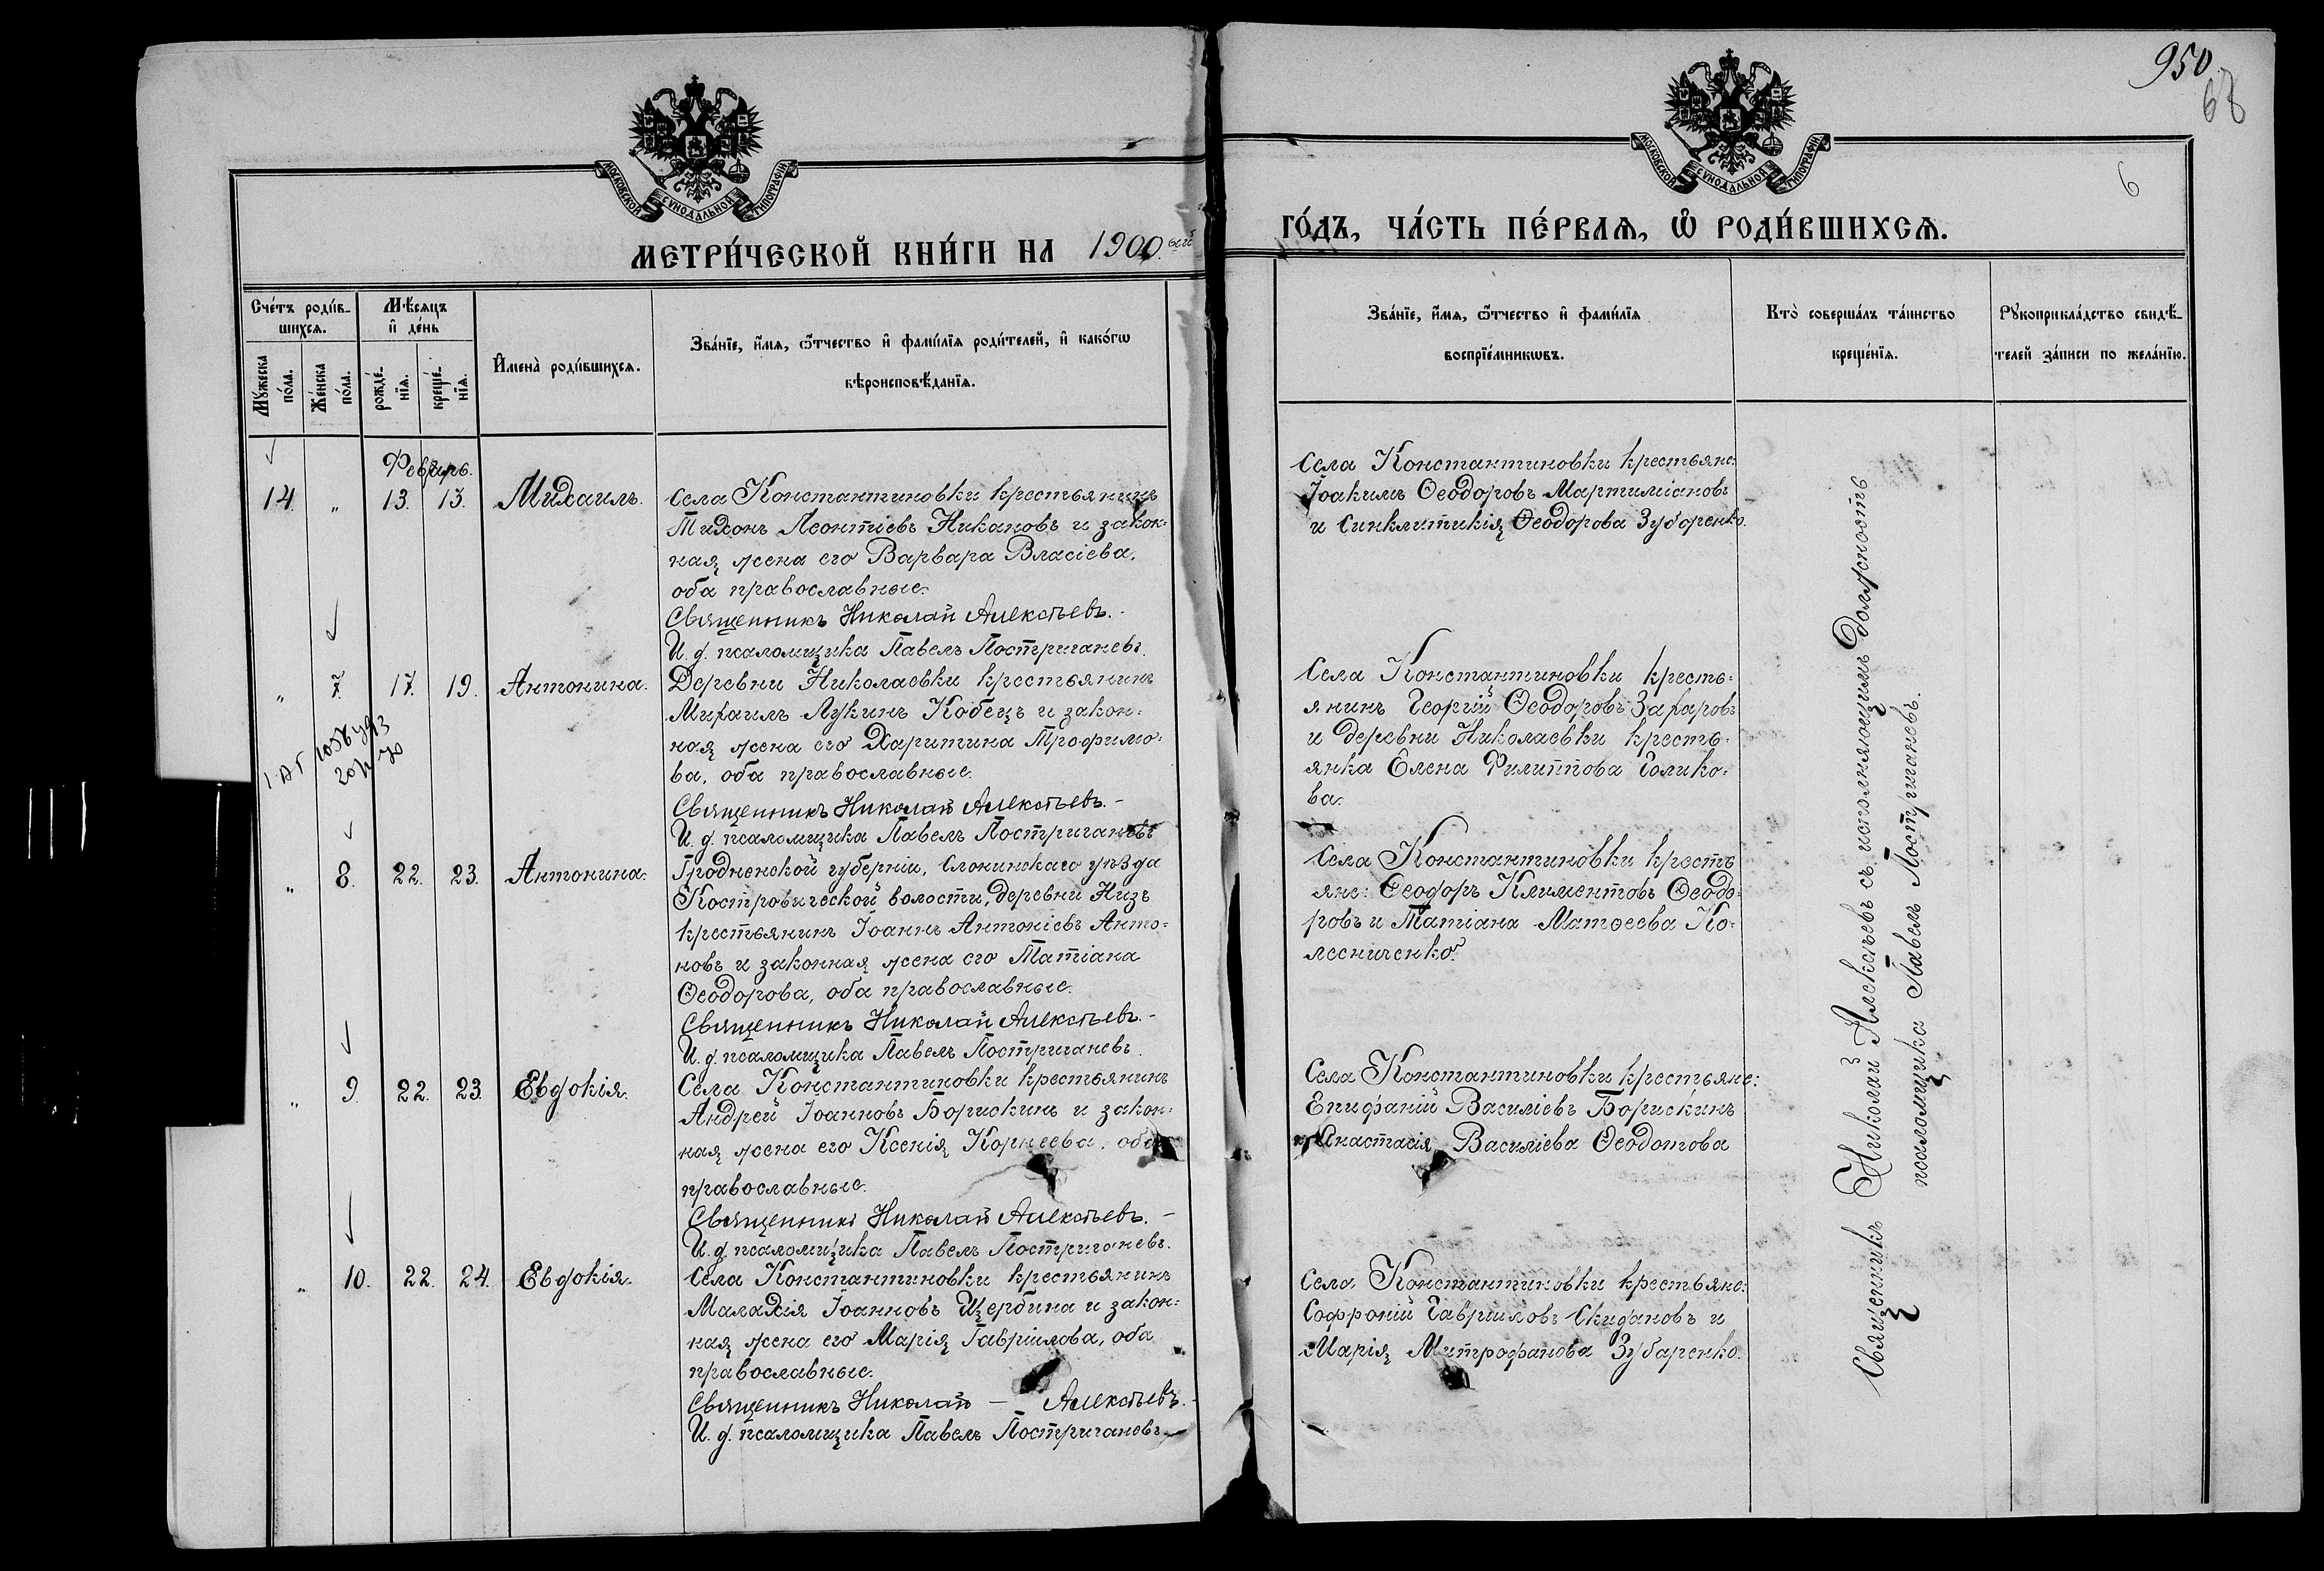 950
68
6
МОСКОВСКОЙ СѴНОДАЛЬНОЙ ТИПОГРАФІИ
МОСКОВСКОЙ СѴНОДАЛЬНОЙ ТИПОГРАФІИ
МЕТРИ́ЧЕСКОЙ КНИ́ГИ НА 1900ый
ГО́ДЪ, ЧА́СТЬ ПЕ́РВАѦ, Ѡ҆ РОДИ́ВШИХСѦ.
Сче́тъ роди́в-
шихсѧ.
Мꙋ́жеска по́ла.
Же́нска по́ла.
Мѣ́сѧцъ
и҆ де́нь
рожде́-нїѧ.
креще́-нїѧ.
И҆мена̀ роди́вшихсѧ.
Зва́нїе, и҆́мѧ, ѻ҆́тчество и҆ фами́лїѧ роди́телей, и҆ како́гѡ
вѣроисповѣ́данїѧ.
Зва́нїе, и҆́мѧ, ѻ҆́тчество и҆ фами́лїѧ
воспрїе́мникѡвъ.
Кто̀ соверша́лъ та́инство
креще́нїѧ.
Рꙋкоприкла́дство свидѣ́-
телей за́писи по жела́нїю.
Февраль.
14. " 13. 13. Михаилъ.
Села Константиновки крестьянинъ
Тихонъ Леонтіевъ Никановъ и закон=
ная жена его Варвара Власіева,
оба православные.
Священникъ Николай Алексѣевъ.
И. д. псаломщика Павелъ Постригачевъ.
Села Константиновки крестьяне:
Іоакимъ Ѳеодоровъ Мартиміановъ
и Синклитикія Ѳеодорова Зубаренко.
" 7. 17. 19. Антонина.
Деревни Николаевки крестьянинъ
Михаилъ Лукинъ Кобецъ и закон=
ная жена его Харитина Трофимо=
ва, оба православные.
Священникъ Николай Алексѣевъ.
И. д. псаломщика Павелъ Постригачевъ
Села Константиновки кресть=
янинъ Георгій Ѳеодоровъ Захаровъ
и деревни Николаевки кресть=
янка Елена Филиппова Голико=
ва.
" 8. 22. 23. Антонина.
Гродненской губерніи, Слонимскаго уѣзда
Костровической волости, деревни Низъ
крестьянинъ Іоаннъ Антоніевъ Анто=
новъ и законная жена его Татіана
Ѳеодорова, оба православные.
Священникъ Николай Алексѣевъ.
И. д. псаломщика Павелъ Постригачевъ.
Села Константиновки кресть
яне: Ѳеодоръ Климентовъ Ѳеодо=
ровъ и Татіана Матѳеева Ко=
лесниченко.
" 9. 22. 23. Евдокія.
Села Константиновки крестьянинъ
Андрей Іоанновъ Борискинъ и закон=
ная жена его Ксенія Корнеева, оба
православные.
Священникъ Николай Алексѣевъ.
И. д. псаломщика Павелъ Постригачевъ.
Села Константиновки крестьяне:
Епифаній Василіевъ Борискинъ
и Анастасія Василіева Ѳеодотова
" 10. 22. 24. Евдокія.
Села Константиновки крестьянинъ
Малахія Іоанновъ Щербина и закон=
ная жена его Марія Гавріилова, оба
православные.
Священникъ Николай Алексѣевъ.
И. д. псаломщика Павелъ Постригачевъ
Села Константиновки крестьяне:
Софроній Гавриловъ Скидановъ и
Марія Митрофанова Зубаренко.
Священникъ Николай Алексѣевъ съ исполняющимъ должность
псаломщика Павелъ Постригачевъ.